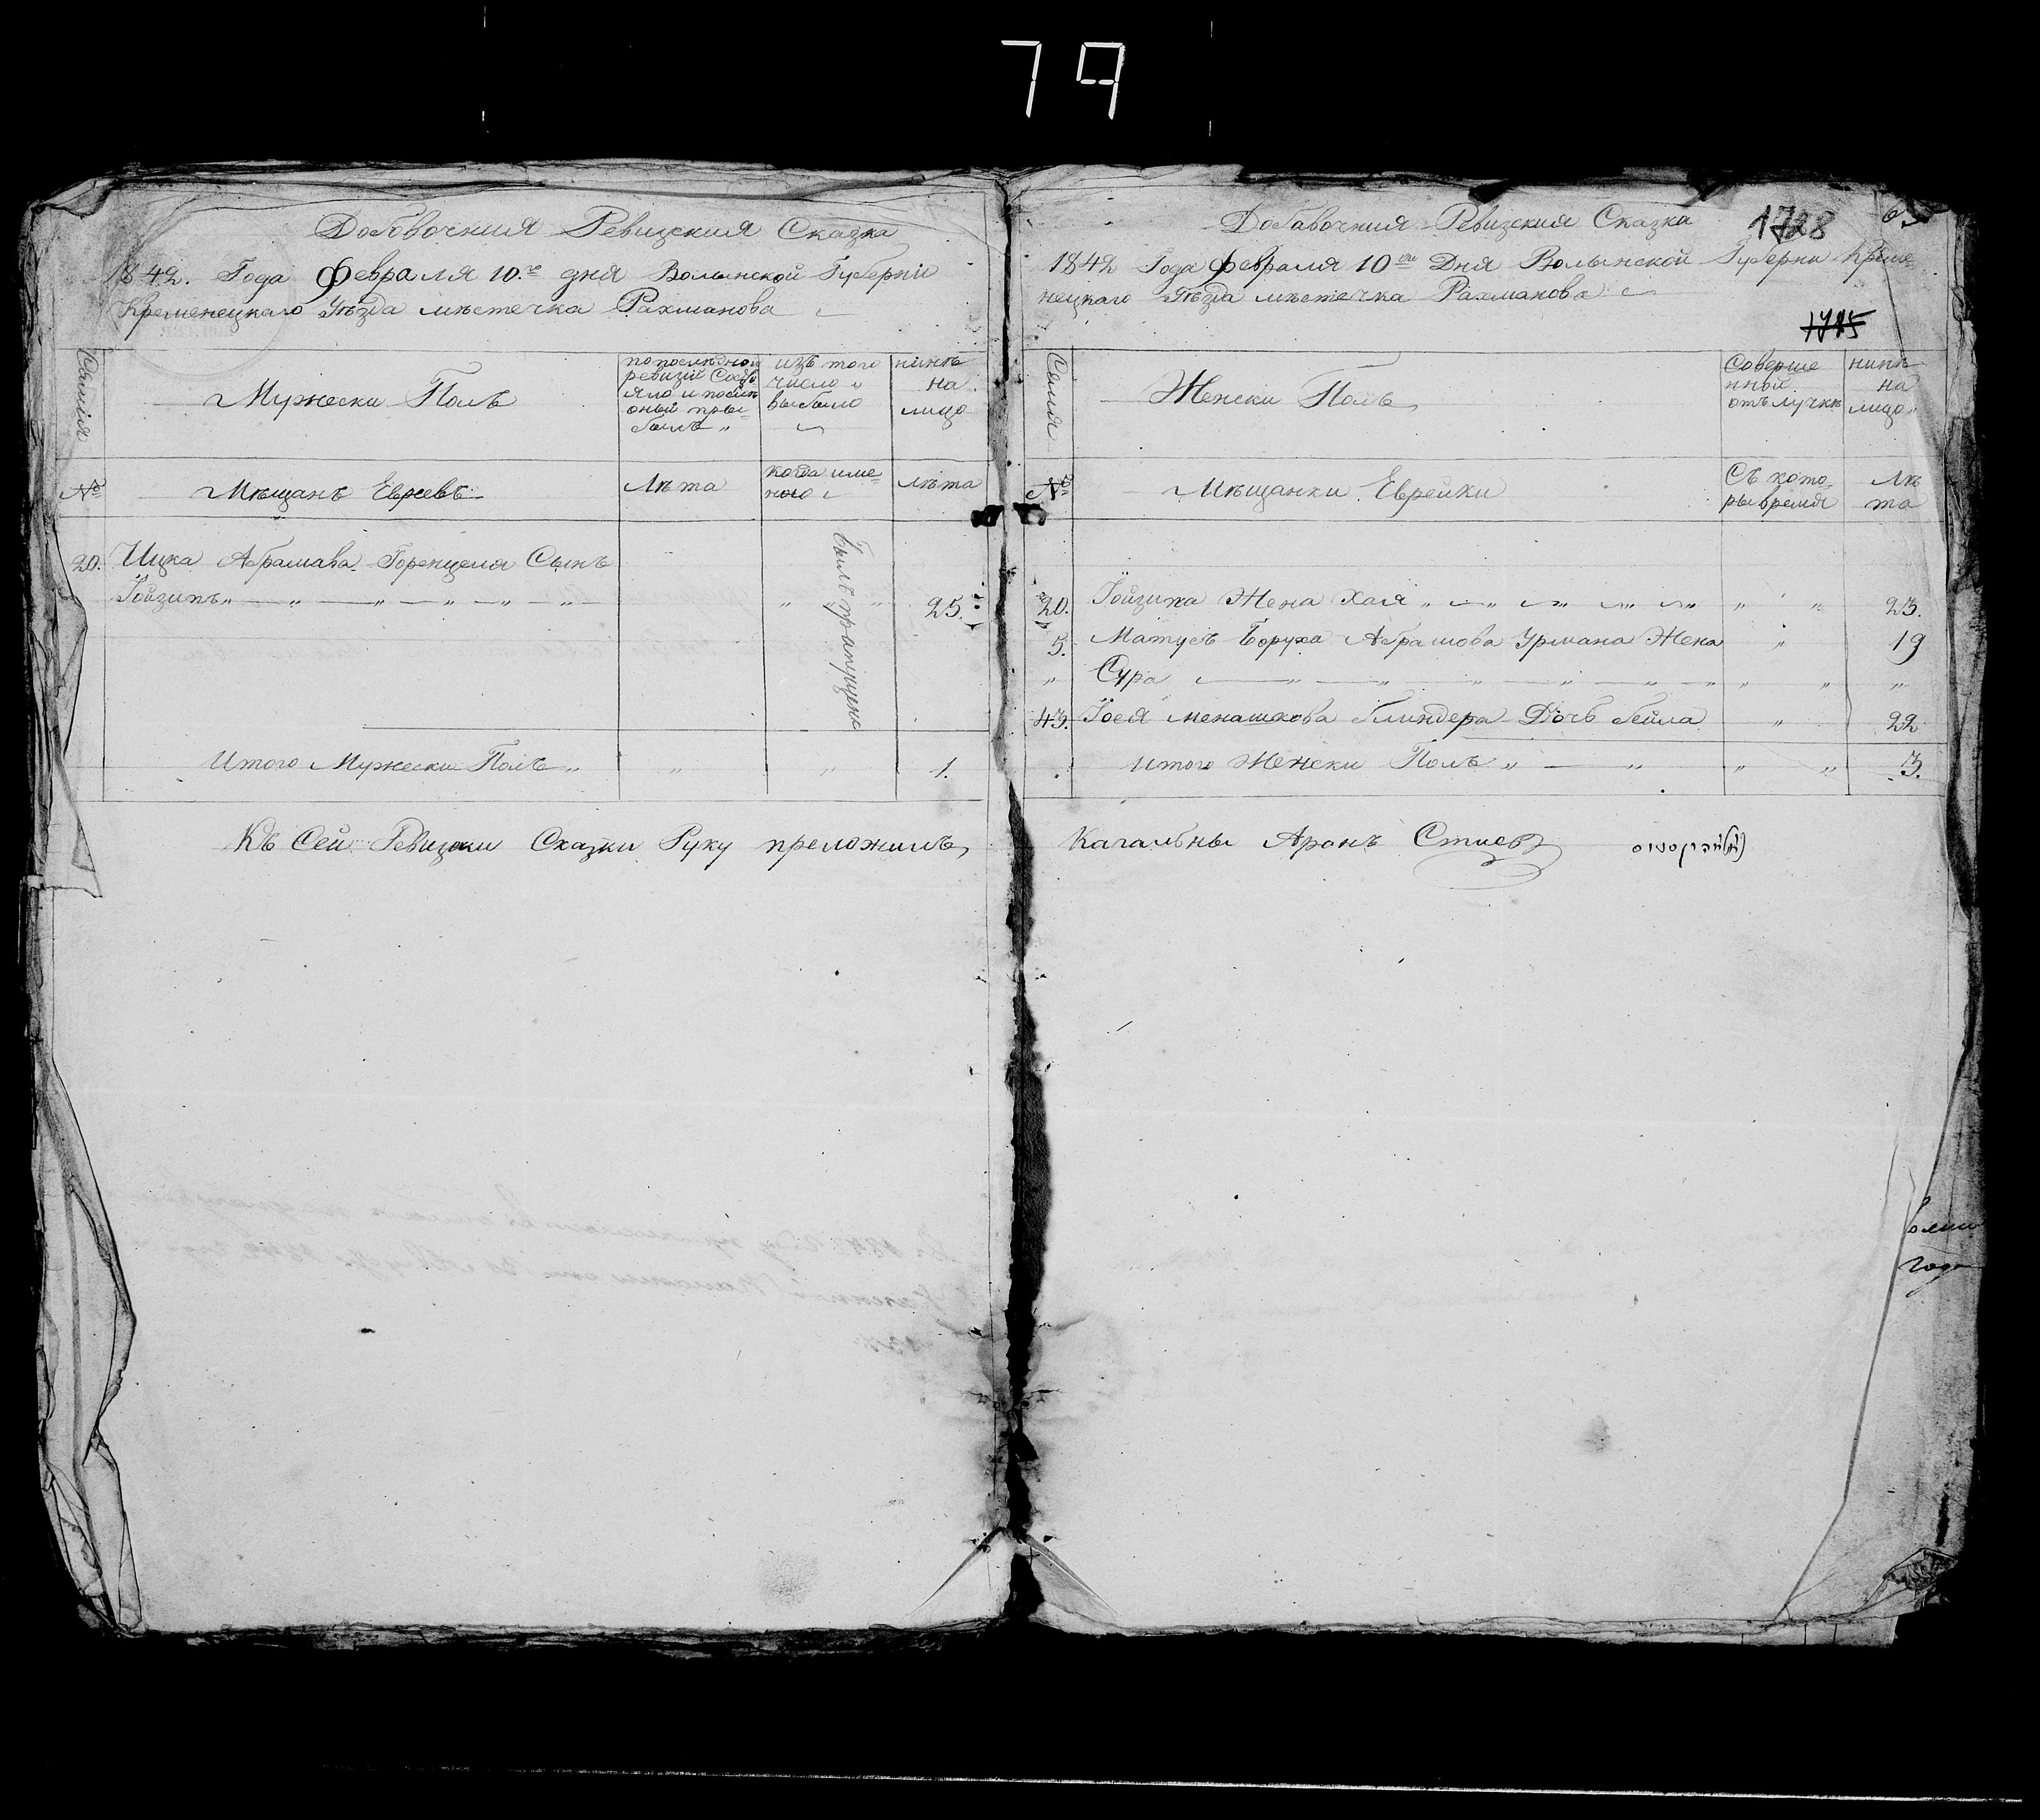 79
Добовочния Ревизския Сказка
1842. Года Февраля 10.го дня Волынской Губерніи
Кременецкаго Уѣзда мѣстечка Рахманова
Семiя
Мужески Полъ
по последной
ревизіи Состо
яло и после
оный при
былъ „
изъ того
число „
выбыло
нинѣ
на
лицо
№
Мѣщанъ Евреевъ
Лѣта
когда име
нно
лѣта
20. Ицка Абрамава Горенцеля Сынъ
Іойзипъ „ „ „ „ „ „ „ „ 25.
Былъ пропущенъ
Итого Мужески Полъ „ „ „ 1.
Къ Сей Ревизски Сказки Руку преложилъ,
Добавочния Ревизския Сказка
1728
1842 Года Февраля 10го Дня Волынской Губерни Креме-
нецкаго Уѣзда мѣстечка Рахманова
1715
Семия
Женски Полъ
Соверше
нной
отълучкѣ
нинѣ
на
лицо „
№
Мѣщанки Еврейки
Съ кото-
ры время
Лѣ
та
20. Іойзипа Жена Хая „ „ „ „ „ „ „ 23.
5. Матусъ Боруха Абрамова Урмана Жена „ 19
„ Сура „ „ „ „ „ „ „ „ „
43. Іося менашкова Блиндера Дочь бейла „ 22
Итого Женски Полъ „ „ „ „ 3.
Кагальны Аронъ
года